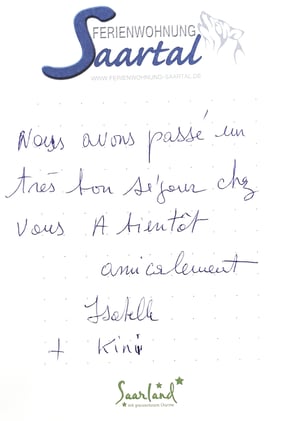 FERIENWOHNUNG
Saartal
WWW.FERIENWOHNUNG-SAARTAL.DE
Nous avons passé un
très bon séjour chez
vous A bientôt
amicalement
Isabelle
+ Kini
Saarland